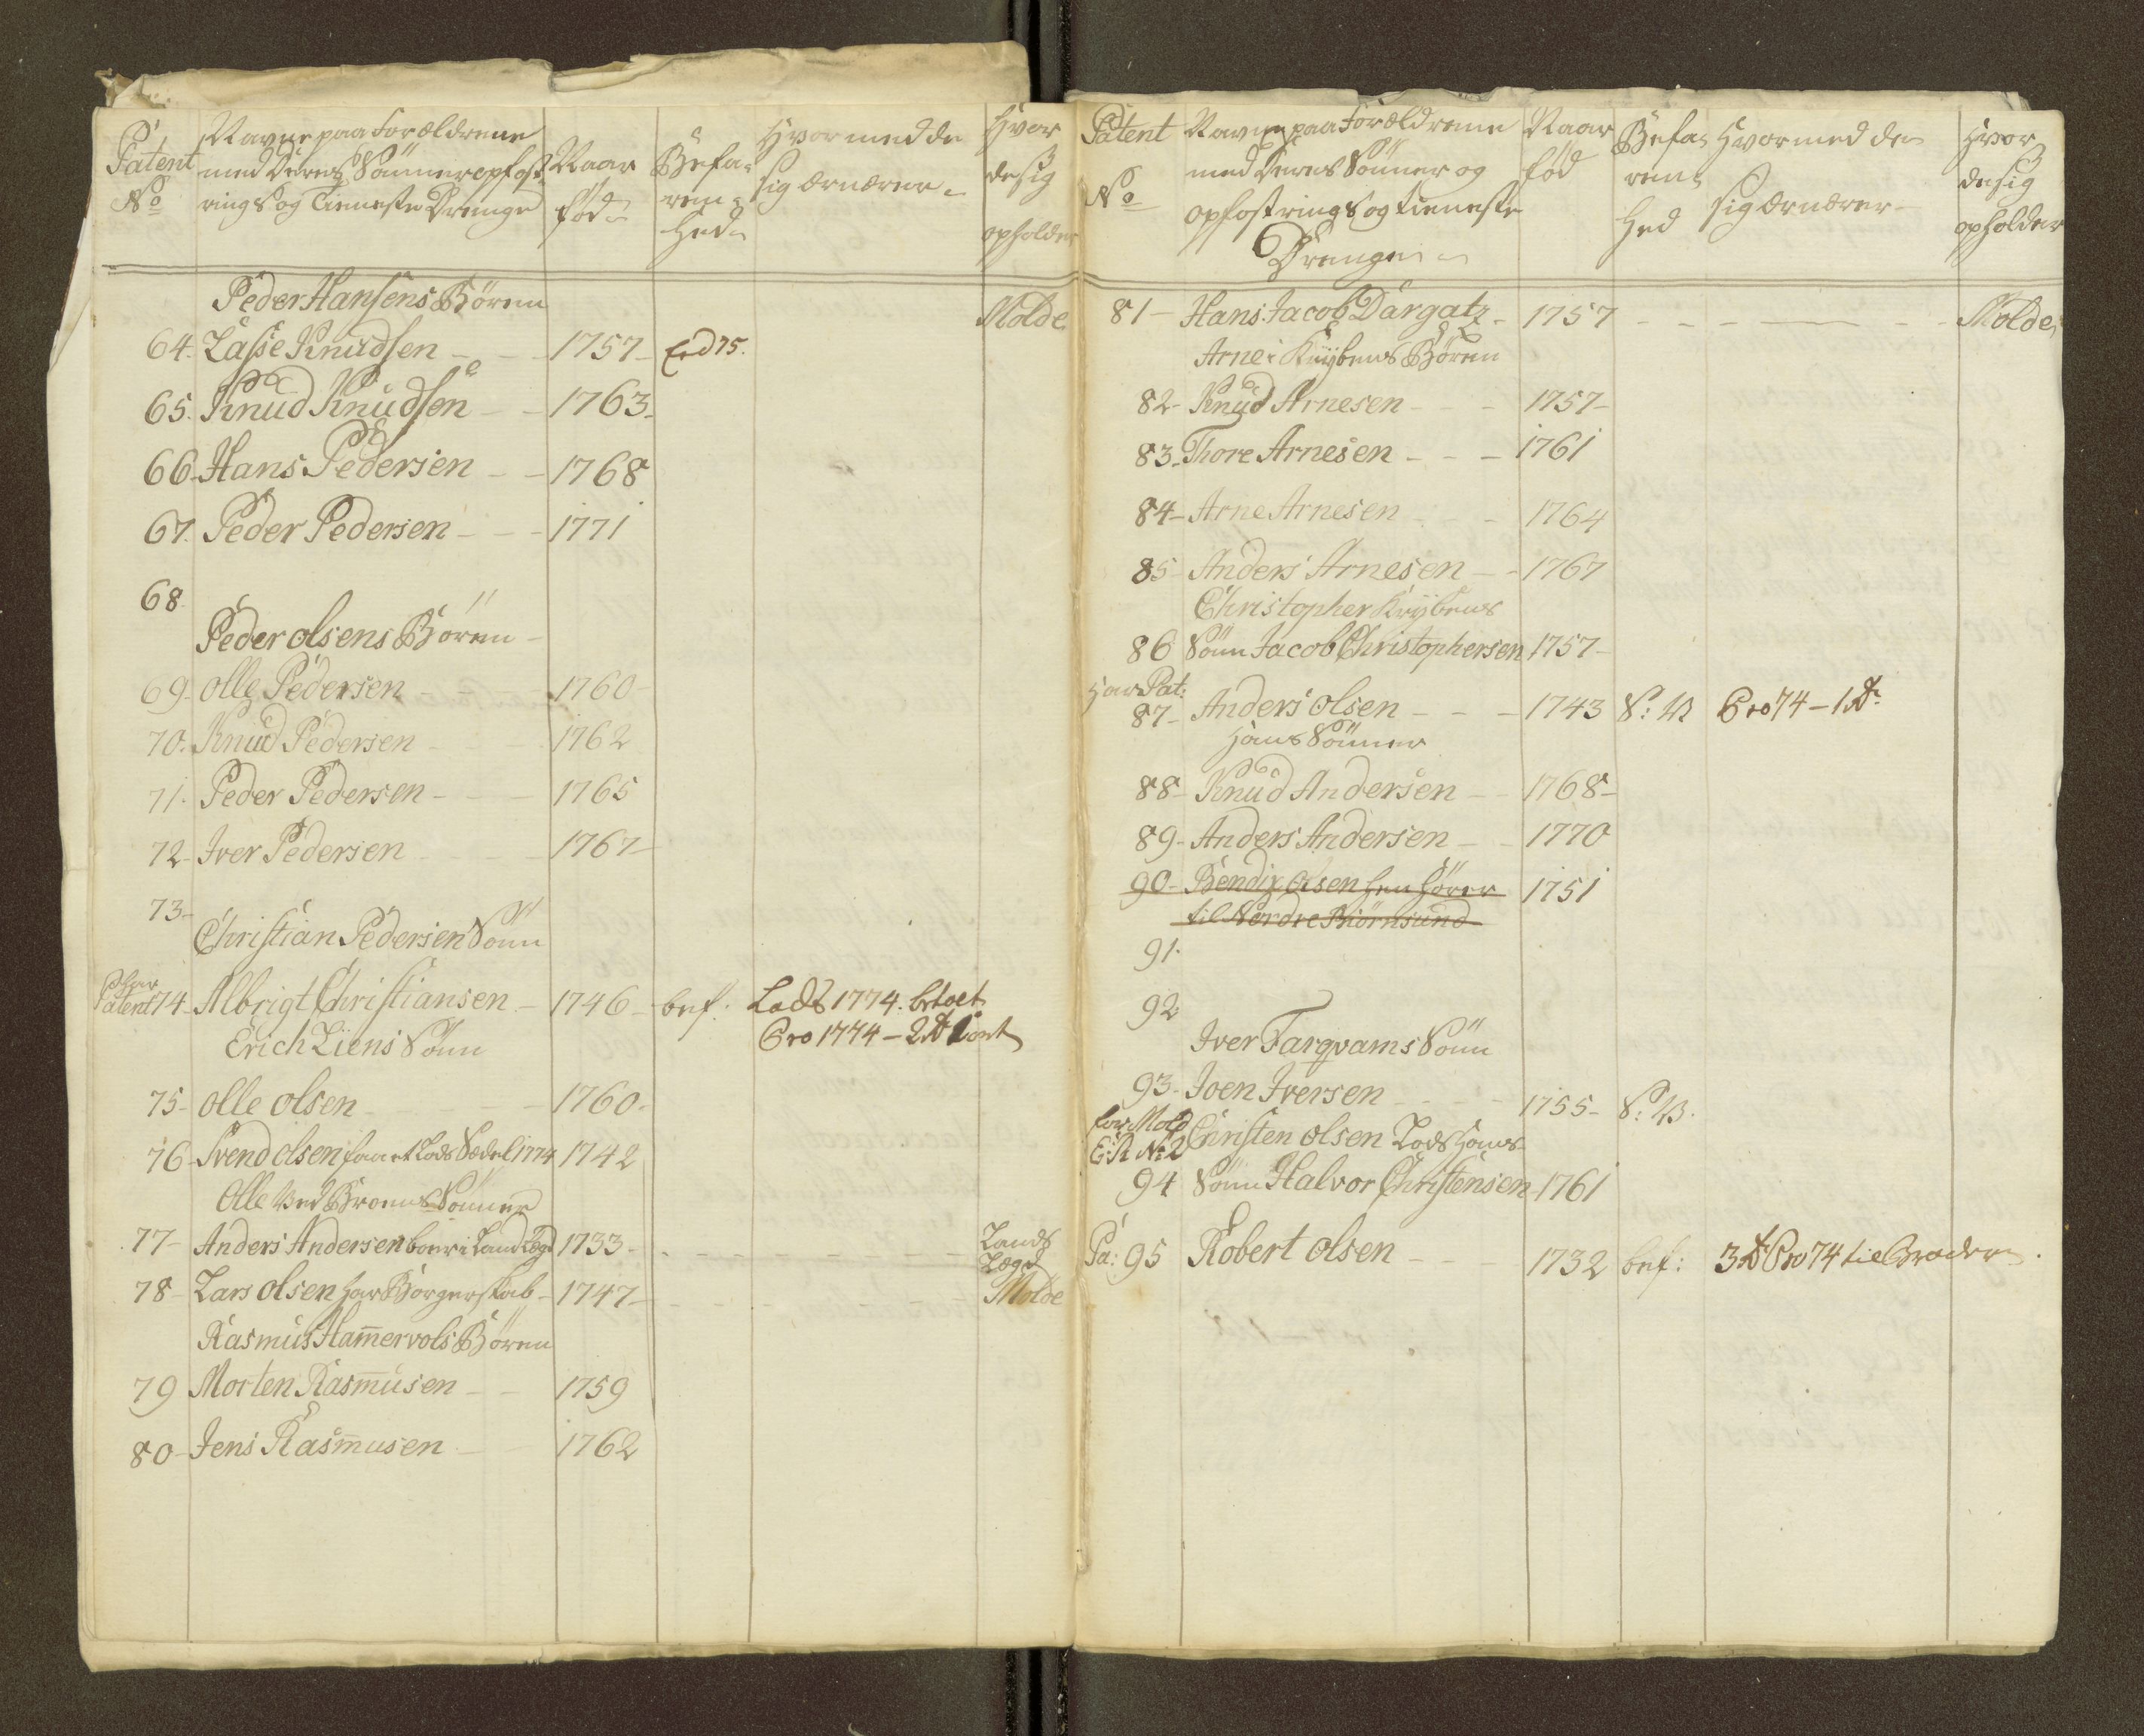 Patent
No
Navne paa Forældrene
med Deres Sönner opfost-
rings og Tieneste Drenge
Naar
fød
Befa-
ren-
hed
Hvormed de
sig ernærer
Hvor
de sig
opholder
Peder Hansens Börn Molde
64. Lasse Knudsen - - 1757
65. Knud Knudsen - - 1763
66. Hans Pedersen - - 1768
67. Peder Pedersen - - 1771
68.
Peder olsens Börn
69. olle Pedersen - - 1760
70. Knud Pedersen - - 1762
71. Peder Pedersen - - 1765
72. Iver Pedersen - - 1767
73-
Christian Pedersen Sönn
har
Patent 74- Albrigt Christiansen - 1746 - bef: Lods 1774.
Pro 1774 - 2
Erich Liens Sönn
75- olle olsen - - 1760-
76- Svend olsen faaet Lods Sædel 1774 1742
Olle Sönner
77- Anders Andersen boer i Land Lægd 1733 - - - Lands
Lægd
78- Lars olsen har Borgerskab - 1747 - - - Molde
Rasmus Hammervols Börn
79 Morten Rasmusen - - 1759
80- Jens Rasmusen - - 1762
Patent
No
Navne paa Forældrene
med Deres Sönner og
opfostrings og tieneste
Drenge
Naar
fød
Befa-
ren-
hed
Hvormed de
sig ernærer
Hvor
de sig
opholder
81- Hans Jacob Dargatz - 1757 - - - Molde
Arne i Krybens Börn
82- Knud Arnesen - - 1757-
83- Thore Arnesen - - 1761
84- Arne Arnesen - - 1764
85- Anders Arnesen - - 1767
Christopher Krybens
86 Sönn Jacob Christophersen 1757-
har Pat:
87- Anders olsen - - 1743 Pro 74 - 1
hans Sönner
88- Knud Andersen - - 1768-
89- Anders Andersen - - 1770
90- Bendix olsen hen hörer 1751
til Nordre Biörnsund
91.
92
Iver Tarqvams Sönn
93- Joen Iversen - - 1755-
No 2 Christen olsen Lods hans
94 Sönn Halvor Christensen 1761
Pa: 95 Robert olsen - - 1732 bef: 3 Pro 74 til